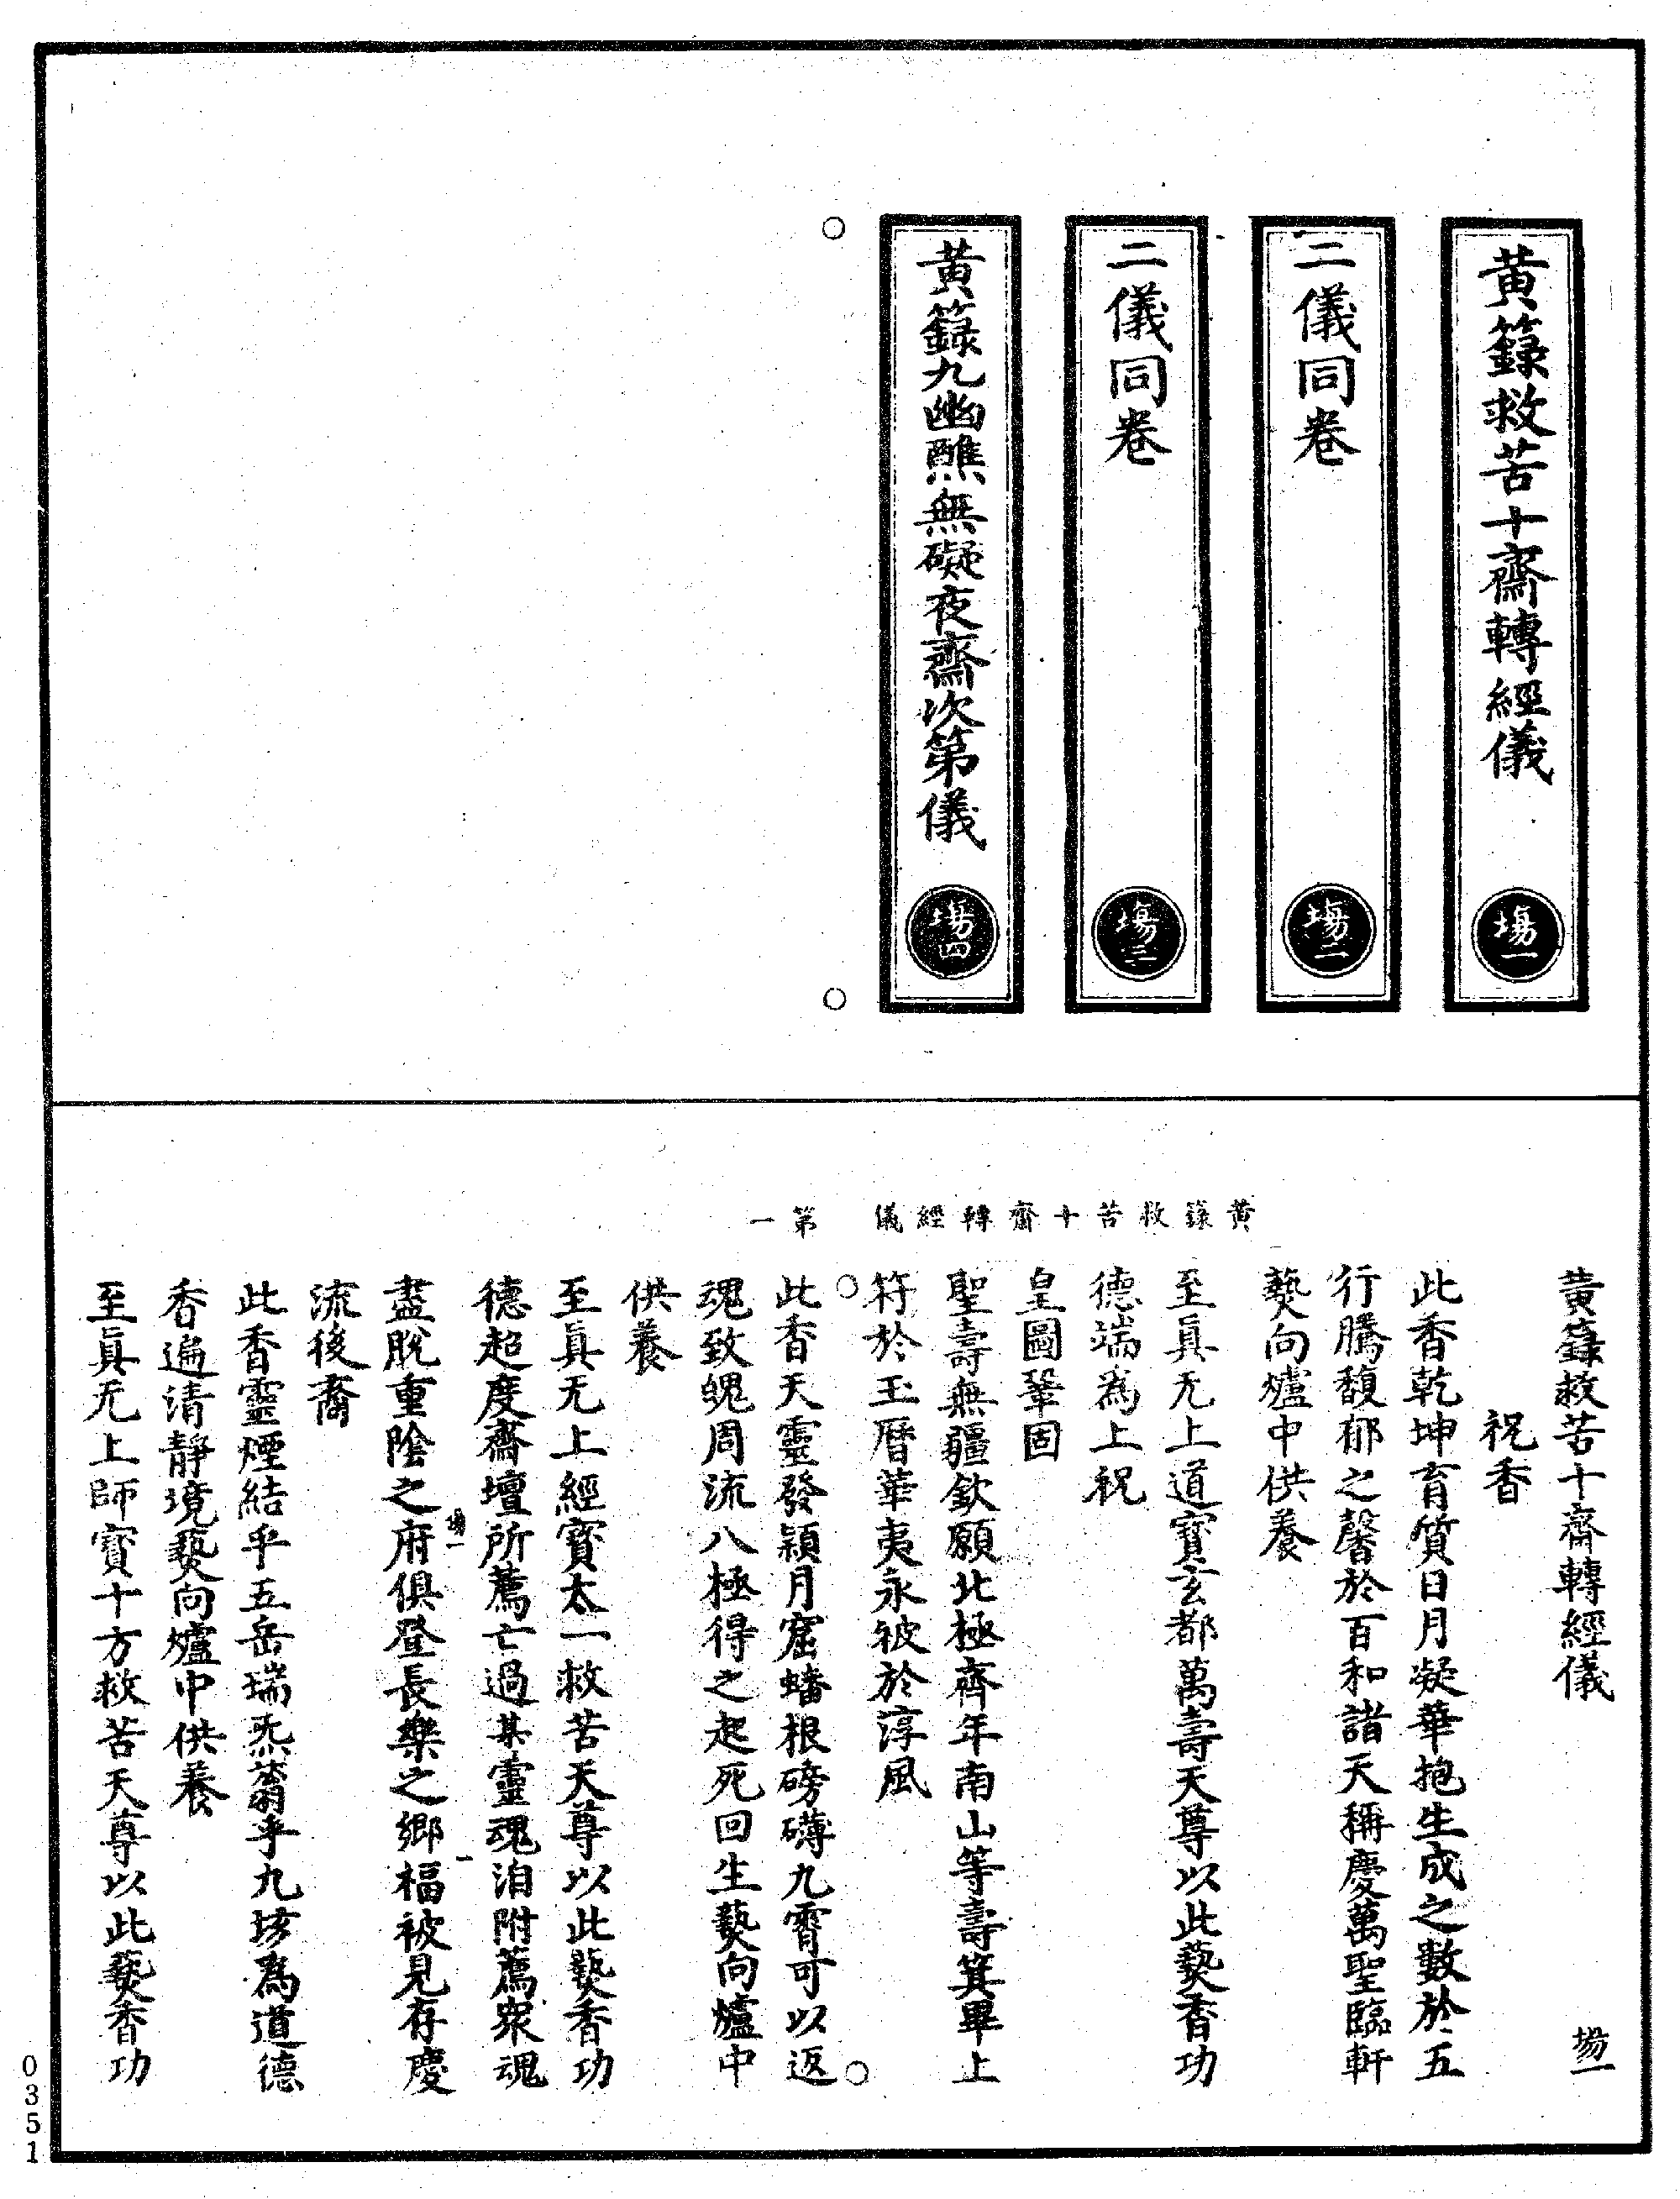 黃籙救苦十齋轉經儀 場一
二儀同卷 場二
二儀同卷 場三
黃籙九幽醮無礙夜齋次第儀 場四
黃籙救苦十齋轉經儀 第一
黃籙救苦十齋轉經儀 場一
祝香
此香乾坤育質日月凝華抱生成之數於五
行騰馥郁之馨於百和諸天稱慶萬聖臨軒
爇向爐中供養
至眞无上道寳玄都萬壽天尊以此爇香功
德端為上祝
皇圖鞏固
聖壽無疆欽願北極齊年南山等壽箕畢上
符於玉曆華夷永被於淳風
此香天靈發穎月窟蟠根磅礴九霄可以返
魂致魄周流八極得之起死回生爇向爐中
供養
至眞无上經寳太一救苦天尊以此爇香功
德超度齋壇所薦亡過某靈魂洎附薦眾魂
場一 一
盡脫重陰之府俱登長樂之鄉福被見存慶
流後裔
此香靈煙結乎五岳瑞炁蓊乎九垓為道德
香遍清靜境爇向爐中供養
至眞无上師寳十方救苦天尊以此爇香功
0351